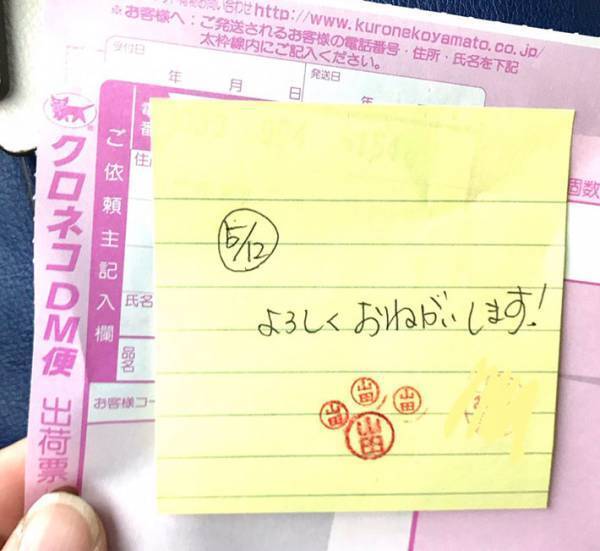 お問い合わせhttp://www.kuronekoyamato.co.jp/
※お客様へ:ご発送されるお客様の電話番号・住所・氏名を下記
太枠線内にご記入ください。
受付日
年 月 日
発送日
年
クロネコDM便 出荷票
ご依頼主記入欄
電
番
住
氏名
品名
お客様コー
個数
5/12
よろしくおねがいします!
山田
山田
山田
山田